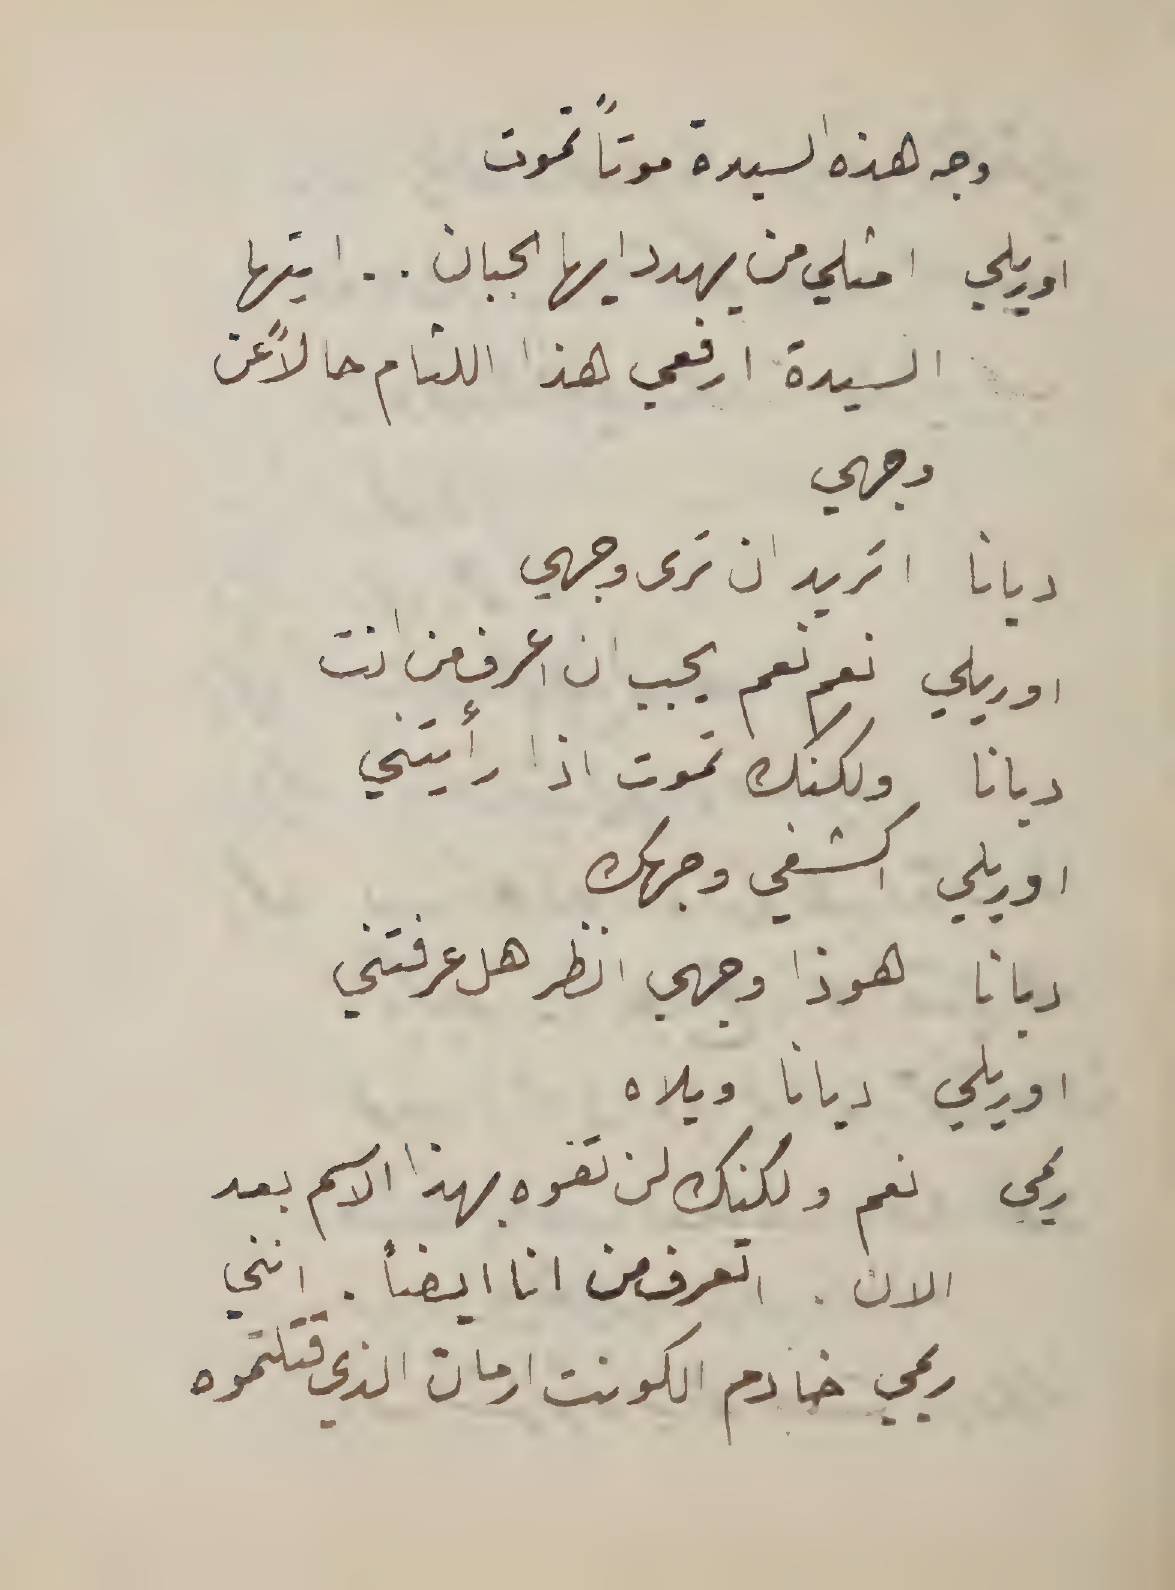 وجه هذه السيدة موتاً تموت
اوريلي امثلي من يهدد ايها الجبان .. ايتها
السيدة ارفعي هذا اللثام حالاً عن
وجهي
ديانا اتريد ان ترى وجهي
اوريلي نعم نعم يجب ان اعرف من انت
ديانا ولكنك تموت اذا رأيتني
اوريلي اكشفي وجهك
ديانا هوذا وجهي انظر هل عرفتني
اوريلي ديانا ويلاه
ريمي نعم ولكنك لن تفوه بهذا الاسم بعد
الان . اتعرف من انا ايضاً . انني
ريمي خادم الكونت ارمان الذي قتلتموه